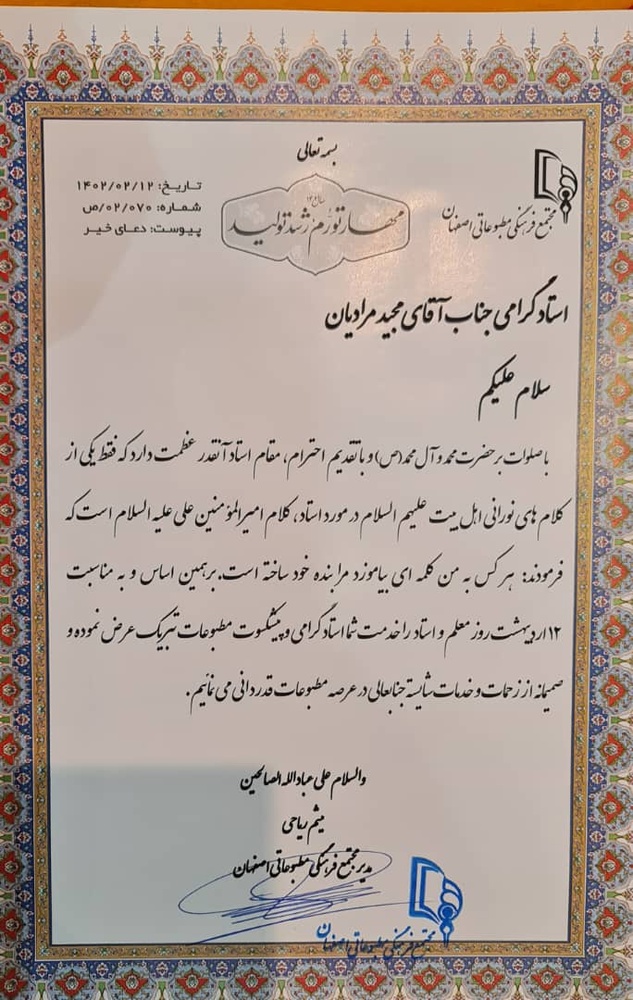 بسمه تعالی
مجتمع فرهنگی مطبوعاتی اصفهان
سال ۱۴۰۲
مهار تورم، رشد تولید
تاریخ: ۱۴۰۲/۰۲/۱۲
شماره: ۰۲/۰۷۰/ص
پیوست: دعای خیر
استاد گرامی جناب آقای مجید مرادیان
سلام علیکم
با صلوات بر حضرت محمد و آل محمد(ص) و با تقدیم احترام، مقام استاد آنقدر عظمت دارد که فقط یکی از
کلام های نورانی اهل بیت علیهم السلام در مورد استاد، کلام امیرالمؤمنین علی علیه السلام است که
فرمودند: هر کس به من کلمه ای بیاموزد مرا بنده خود ساخته است. بر همین اساس و به مناسبت
۱۲ اردیبهشت روز معلم و استاد را خدمت شما استاد گرامی و پیشکسوت مطبوعات تبریک عرض نموده و
صمیمانه از زحمات و خدمات شایسته جنابعالی در عرصه مطبوعات قدردانی می نمائیم.
والسلام علی عبادالله الصالحین
میثم ریاحی
مدیر مجتمع فرهنگی مطبوعاتی اصفهان
مجتمع فرهنگی مطبوعاتی اصفهان